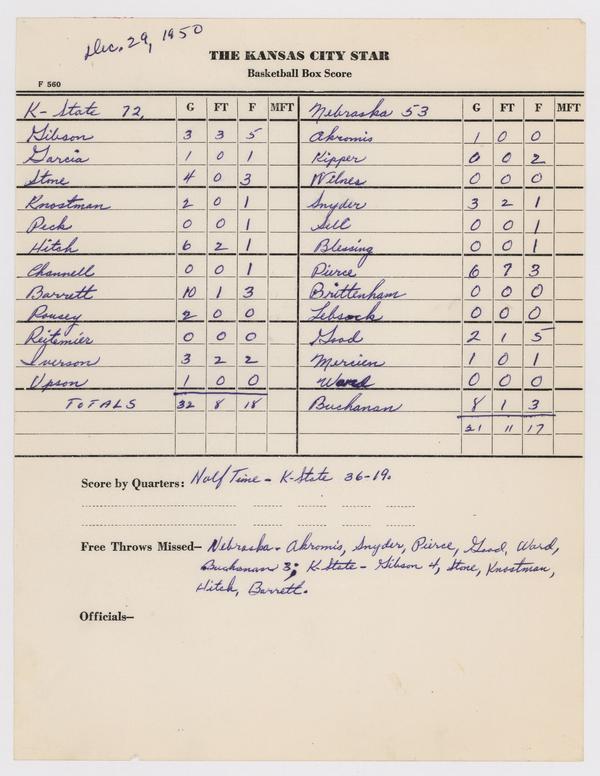 Dec. 29, 1950
THE KANSAS CITY STAR
Basketball Box Score
F 560
K-State 72, G FT F MFT Nebraska 53 G FT F MFT
Gibson 3 3 5 Akromis 1 0 0
Garcia 1 0 1 Kipper 0 0 2
Stone 4 0 3 Wilnes 0 0 0
Knostman 2 0 1 Snyder 3 2 1
Peck 0 0 1 Sell 0 0 1
Hitch 6 2 1 Blessing 0 0 1
Channell 0 0 1 Pierce 6 7 3
Barrett 10 1 3 Brittenham 0 0 0
Rousey 2 0 0 Lebsock 0 0 0
Reitemier 0 0 0 Good 2 1 5
Iverson 3 2 2 Mercien 1 0 1
Upson 1 0 0 Ward 0 0 0
TOTALS 32 8 18 Buchanan 8 1 3
21 11 17
Score by Quarters: Half Time - K-State 36-19.
Free Throws Missed— Nebraska - Akromis, Snyder, Pierce, Good, Ward,
Buchanan 3; K-State - Gibson 4, Stone, Knostman,
Hitch, Barrett.
Officials—